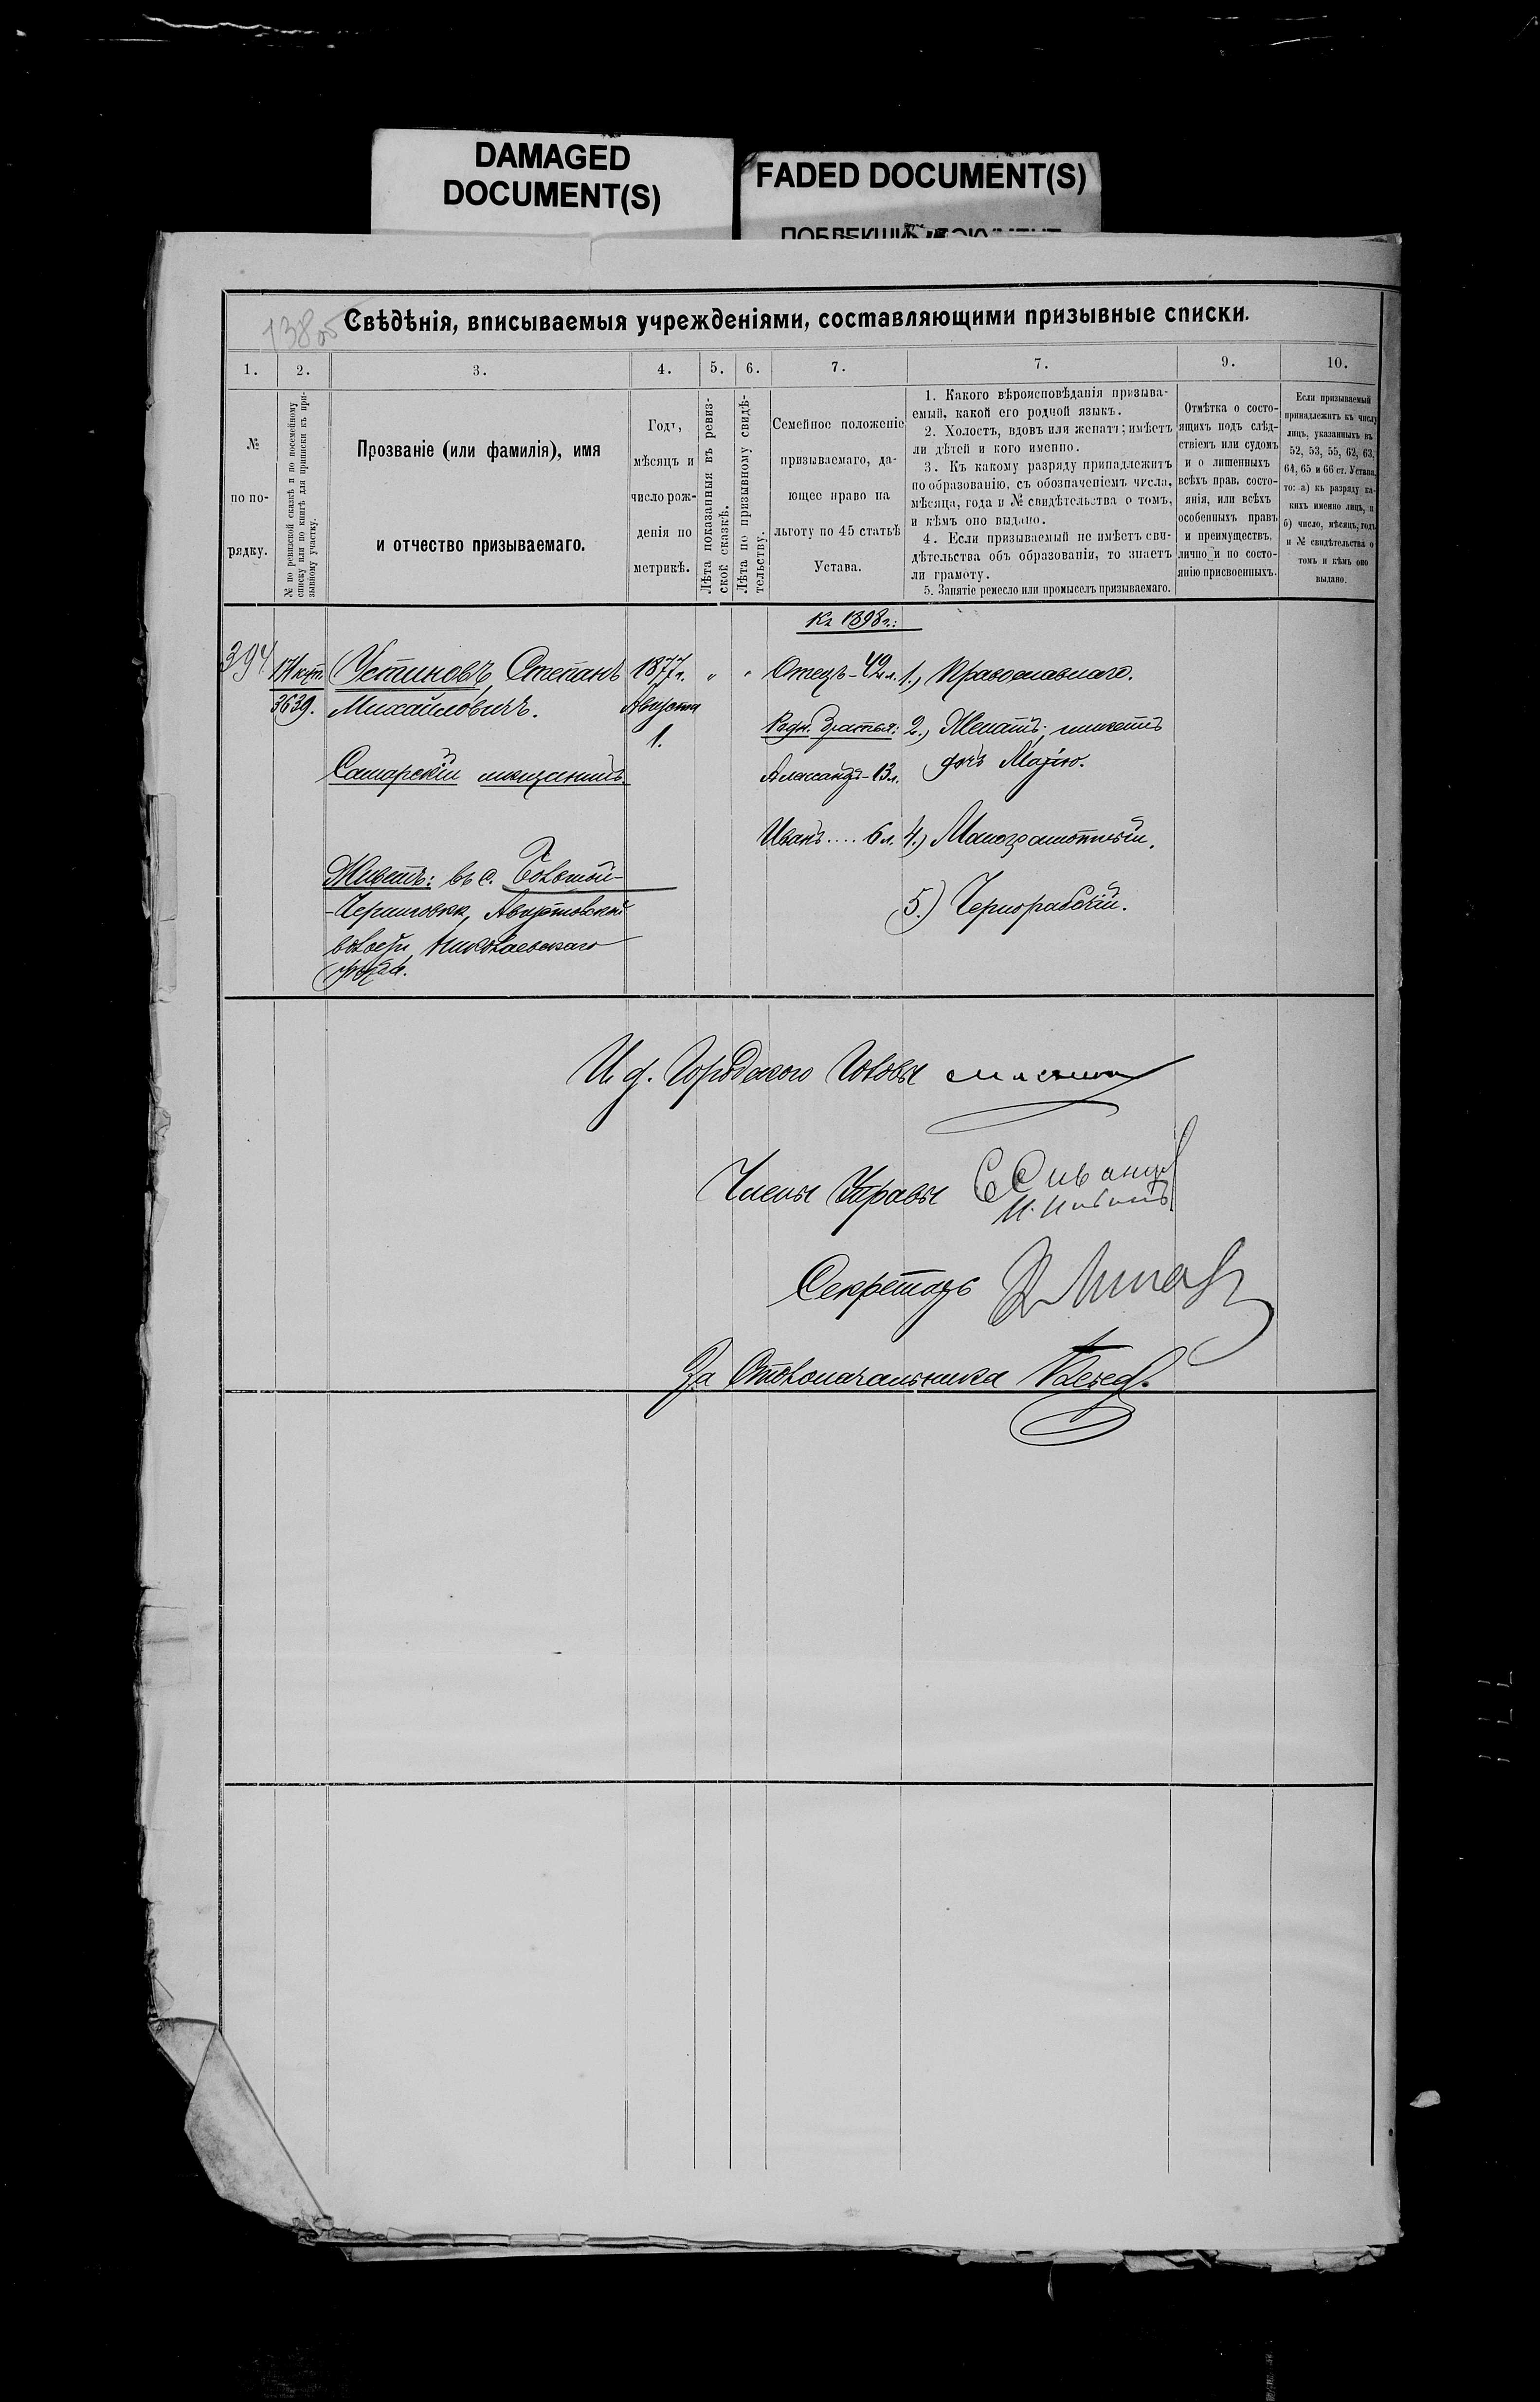 DAMAGED
DOCUMENT(S)
FADED DOCUMENT(S)
138об
Свѣдѣнія, вписываемыя учрежденіями, составляющими призывные списки.
1.
2.
3.
4.
5.
6.
7.
7.
9.
10.
№
по по-
рядку.
№ по ревизской сказкѣ и по посемейному
списку или по книгѣ для приписки къ при-
зывному участку.
Прозваніе (или фамилія), имя
и отчество призываемаго.
Годъ,
мѣсяцъ и
число рож-
денія по
метрикѣ.
Лѣта показанныя въ ревиз-
ской сказкѣ.
Лѣта по призывному свидѣ-
тельству.
Семейное положеніе
призываемаго, да-
ющее право на
льготу по 45 статьѣ
Устава.
1. Какого вѣроисповѣданія призыва-
емый, какой его родной языкъ.
2. Холостъ, вдовъ или женатъ; имѣетъ
ли дѣтей и кого именно.
3. Къ какому разряду принадлежитъ
по образованію, съ обозначеніемъ числа,
мѣсяца, года и № свидѣтельства о томъ,
и кѣмъ оно выдано.
4. Если призываемый не имѣетъ сви-
дѣтельства объ образованіи, то знаетъ
ли грамоту.
5. Занятіе ремесло или промыселъ призываемаго.
Отмѣтка о состо-
ящихъ подъ слѣд-
ствіемъ или судомъ
и о лишенныхъ
всѣхъ прав. состо-
янія, или всѣхъ
особенныхъ правъ
и преимуществъ,
лично и по состо-
янію присвоенныхъ.
Если призываемый
принадлежитъ къ числу
лицъ, указанныхъ въ
52, 53, 55, 62, 63,
64, 65 и 66 ст. Устава,
то: а) къ разряду ка-
кихъ именно лицъ, и
б) число, мѣсяцъ, годъ
и № свидѣтельства о
томъ и кѣмъ оно
выдано.
Къ 1898 г.:
394
3639.
Устиновъ, Степанъ
Михайловичъ.
Самарскій мѣщанинъ.
Живетъ: въ с. Большой-
-Черниговкѣ, Августовской
волости, Николаевскаго
уѣзда.
1877 г.
Августа
1.
" "
Отецъ - 42 л.
Родн. братья:
Александръ - 13 л.
Иванъ .... 6 л.
1.) Православнаго.
2.) Женатъ; имѣетъ
дочь Марію.
4.) Малограмотный.
5.) Чернорабочій.
И. д. Городского Головы
Члены Управы
Секретарь
За Столоначальника